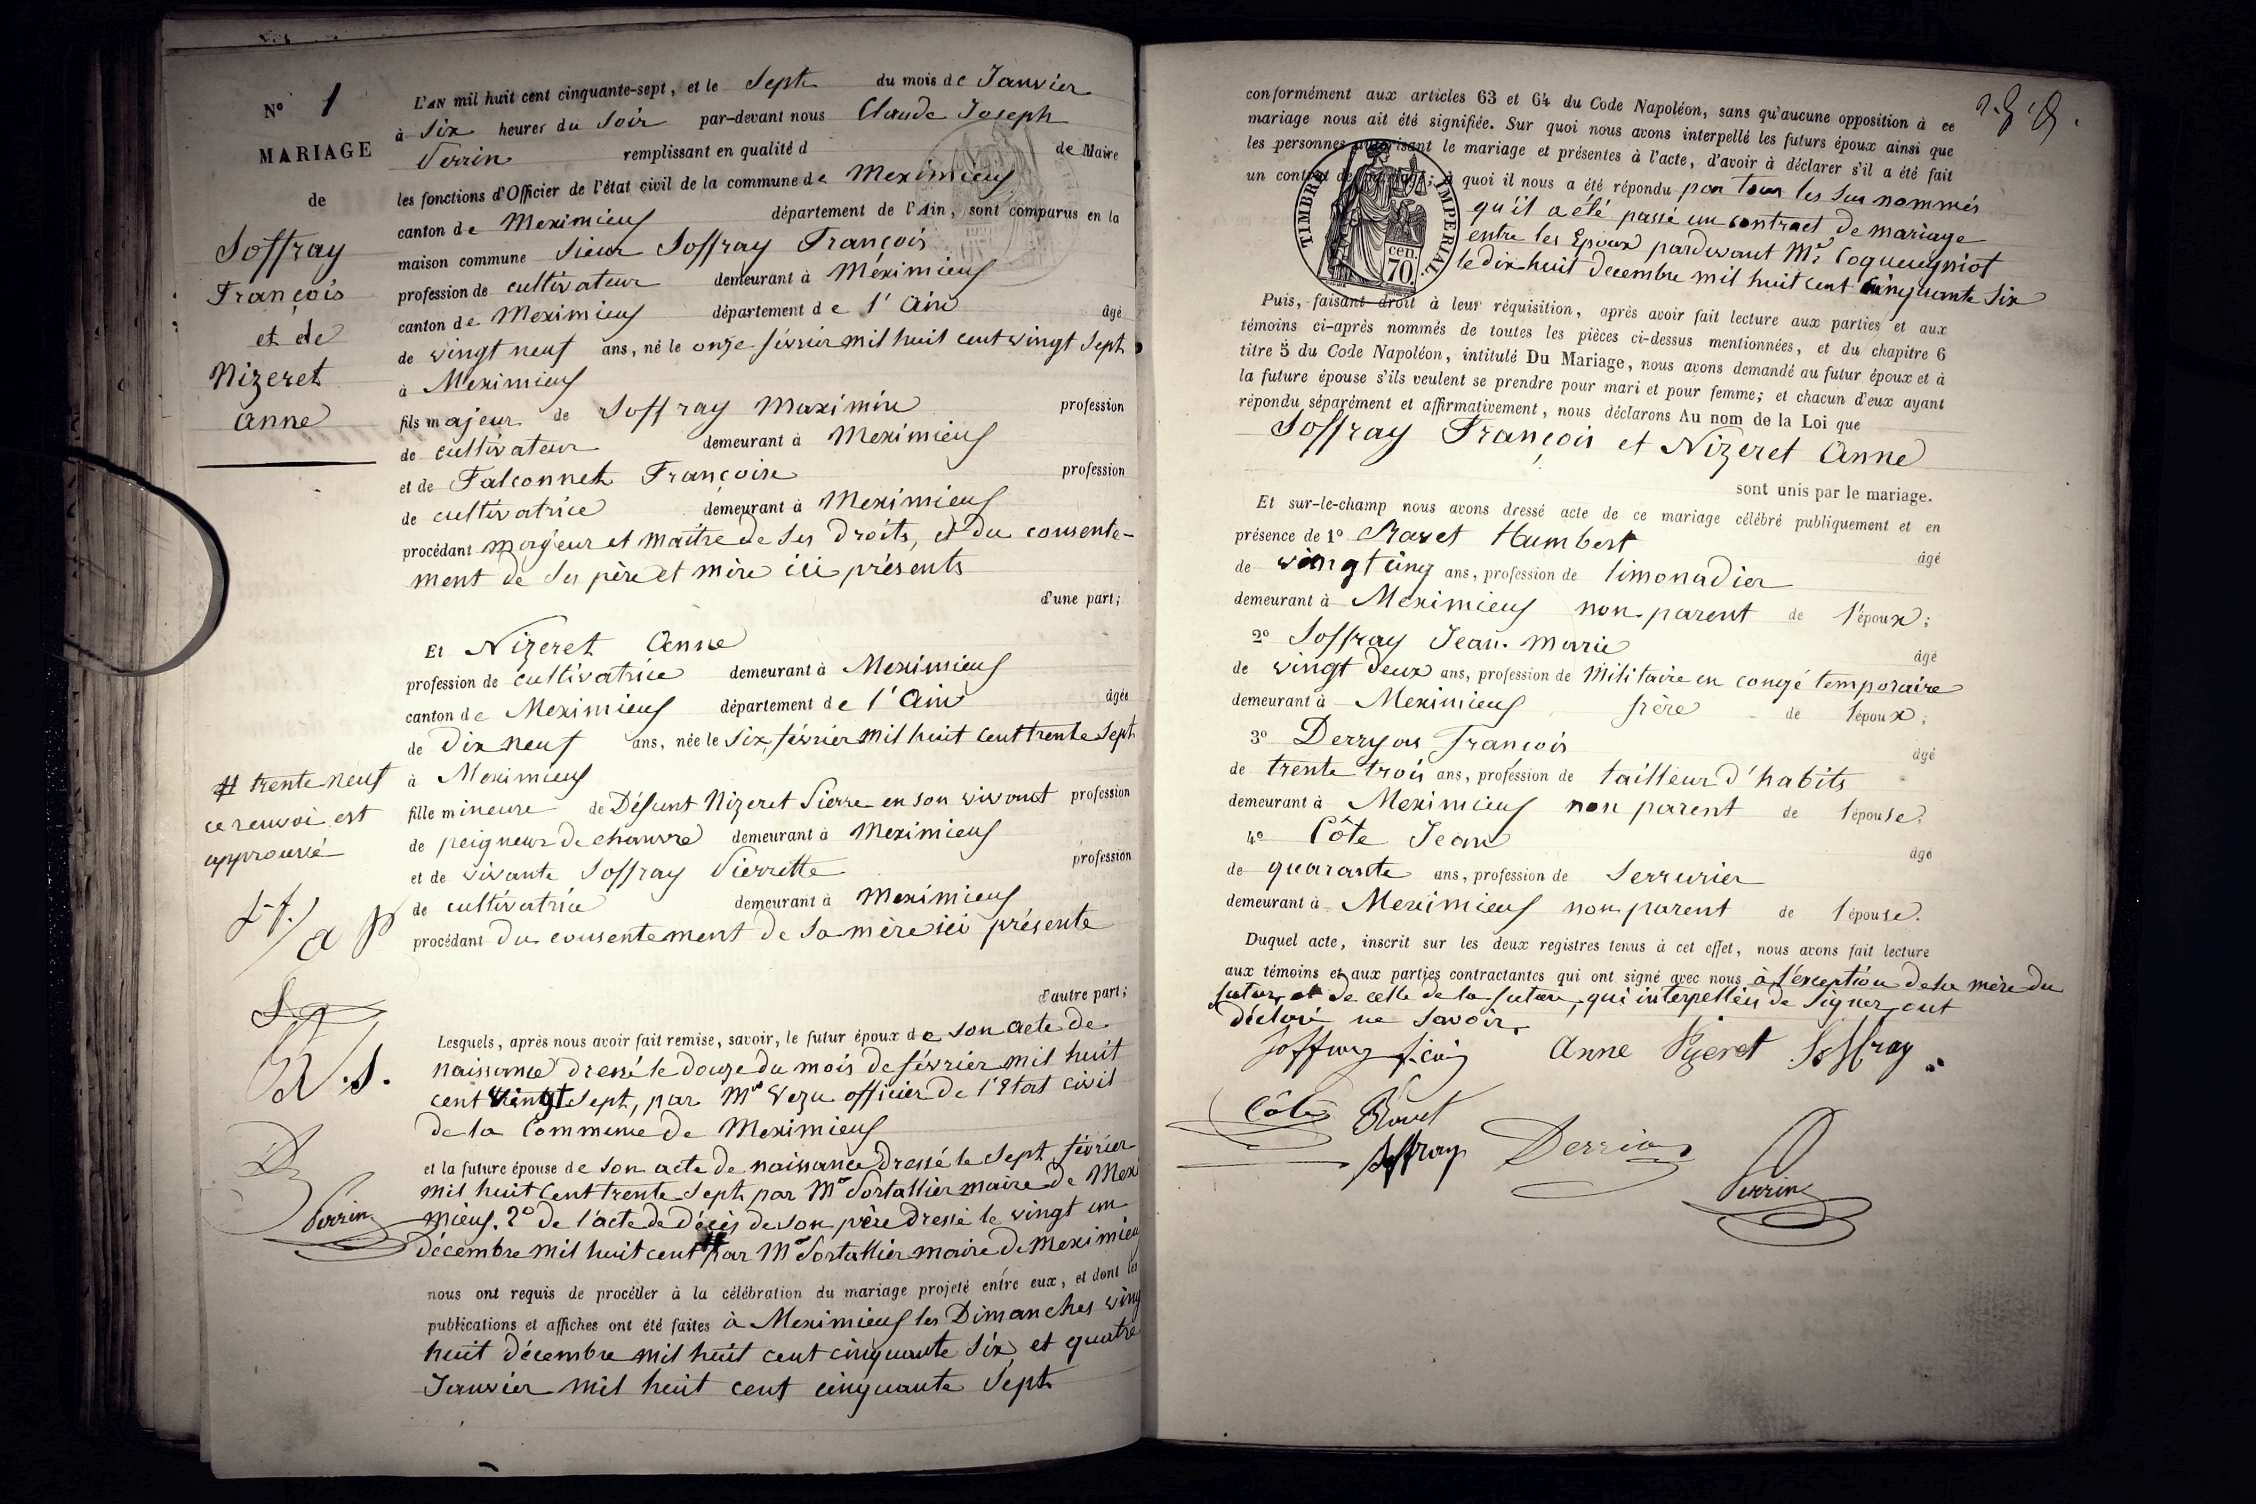 N° 1
MARIAGE
de
Soffray
François
et de
Nizeret
Anne
L'AN mil huit cent cinquante-sept, et le Sept du mois de Janvier
à Six heures du Soir par-devant nous Claude Joseph
Perrin remplissant en qualité d de Maire
les fonctions d'Officier de l'état civil de la commune de Meximieux
canton de Meximieux département de l'Ain, sont comparus en la
maison commune Sieur Soffray François
profession de cultivateur demeurant à Méximieux
canton de Meximieux département de l'Ain âgé
de vingt neuf ans, né le onze février mil huit cent vingt Sept
à Meximieux
fils majeur de Soffray Maximin profession
de cultivateur demeurant à Meximieux
et de Falconnet Françoise profession
de cultivatrice demeurant à Meximieux
procédant majeur et maître de ses droits, et du consente-
ment de ses père et mère ici présents
d'une part;
Et Nizeret Anne
profession de cultivatrice demeurant à Meximieux
canton de Meximieux département de l'Ain âgée
de dix neuf ans, née le six février mil huit cent trente Sept
à Meximieux
fille mineure de Défunt Nizeret Pierre en son vivant profession
de peigneur de chanvre demeurant à Meximieux
et de vivante Soffray Pierrette profession
de cultivatrice demeurant à Meximieux
procédant du consentement de sa mère ici présente
d'autre part;
# trente neuf
ce renvoi est
approuvé
f.f.
a p
S
R.S.
D
Perrin
Lesquels, après nous avoir fait remise, savoir, le futur époux de son acte de
naissance dressé le douze du mois de février mil huit
cent vingt Sept, par Mr Vezu officier de l'Etat civil
de la Commune de Meximieux
et la future épouse de son acte de naissance dressé le Sept février
mil huit cent trente Sept par Mr Portallier maire de Mexi
mieux. 2° de l'acte de décès de son père dressé le vingt un
décembre mil huit cent # par Mr Portallier maire de Meximieux
nous ont requis de procéder à la célébration du mariage projeté entre eux, et dont les
publications et affiches ont été faites à Meximieux les Dimanches vingt
huit décembre mil huit cent cinquante Six, et quatre
Janvier mil huit cent cinquante Sept
conformément aux articles 63 et 64 du Code Napoléon, sans qu'aucune opposition à ce
mariage nous ait été signifiée. Sur quoi nous avons interpellé les futurs époux ainsi que
les personnes autorisant le mariage et présentes à l'acte, d'avoir à déclarer s'il a été fait
un contrat de mariage; à quoi il nous a été répondu par tous les sus nommés
qu'il a été passé un contract de mariage
entre les Epoux pardevant Me Coqueugniot
le dix huit decembre mil huit cent cinquante Six
TIMBRE IMPERIAL.
cen.
70.
Puis, faisant droit à leur réquisition, après avoir fait lecture aux parties et aux
témoins ci-après nommés de toutes les pièces ci-dessus mentionnées, et du chapitre 6
titre 5 du Code Napoléon, intitulé Du Mariage, nous avons demandé au futur époux et à
la future épouse s'ils veulent se prendre pour mari et pour femme; et chacun d'eux ayant
répondu séparément et affirmativement, nous déclarons Au nom de la Loi que
Soffray François et Nizeret Anne
sont unis par le mariage.
Et sur-le-champ nous avons dressé acte de ce mariage célébré publiquement et en
présence de 1° Ravet Humbert âgé
de vingt cinq ans, profession de limonadier
demeurant à Meximieux non parent de l'époux;
2° Soffray Jean. Marie âgé
de vingt deux ans, profession de Militaire en congé temporaire
demeurant à Meximieux frère de l'époux;
3° Derryas François âgé
de trente trois ans, profession de tailleur d'habits
demeurant à Meximieux non parent de l'épouse;
4° Côte Jean âgé
de quarante ans, profession de Serrurier
demeurant à Meximieux non parent de l'épouse.
Duquel acte, inscrit sur les deux registres tenus à cet effet, nous avons fait lecture
aux témoins et aux parties contractantes qui ont signé avec nous à l'exception de la mère du
futur, et de celle de la future, qui interpellées de Signer, ont
déclaré ne Savoir.
Soffray Anne Nizeret Soffray
Côte Ravet
Soffray Derrias Perrin